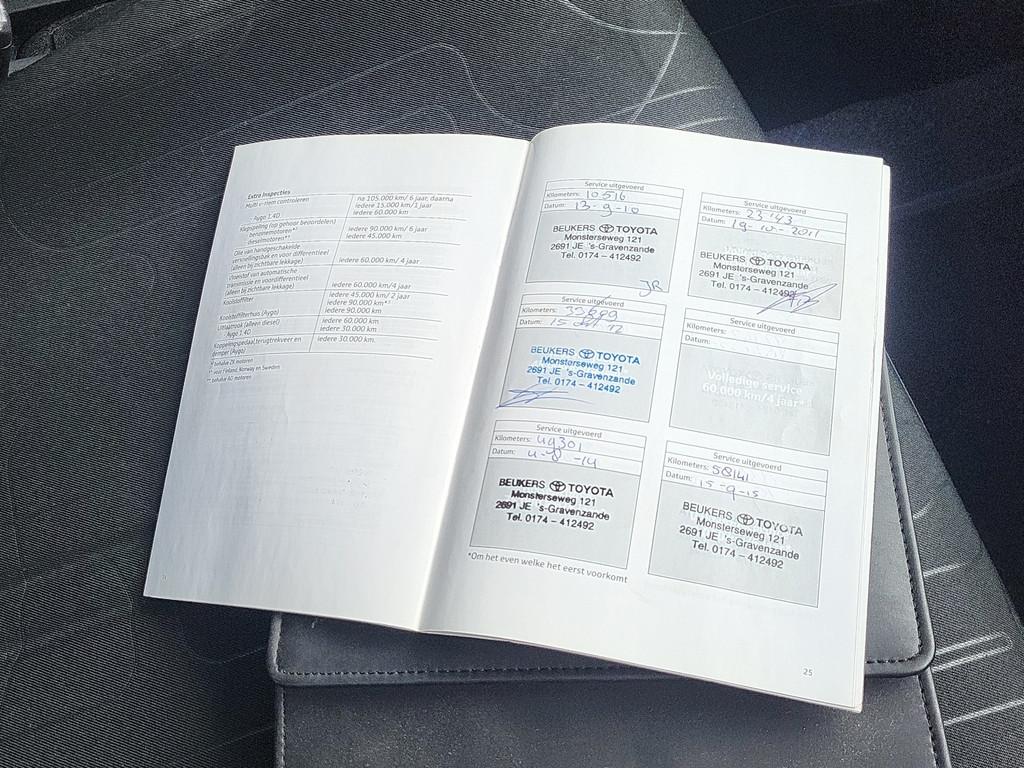 Extra Inspecties
Multi v-riem controleren na 105.000 km/ 6 jaar, daarna
iedere 15.000 km/1 jaar
Aygo 1.4D iedere 60.000 km
Klepspeling (op gehoor beoordelen)
benzinemotoren*¹ iedere 90.000 km/ 6 jaar
dieselmotoren*³ iedere 45.000 km
Olie van handgeschakelde
versnellingsbak en voor differentieel
(alleen bij zichtbare lekkage) iedere 60.000 km/ 4 jaar
Vloeistof van automatische
transmissie en voordifferentieel
(alleen bij zichtbare lekkage) iedere 60.000 km/4 jaar
Koolstoffilter iedere 45.000 km/ 2 jaar
iedere 90.000 km*²
Koolstoffilterhuis (Aygo) iedere 90.000 km
Uitlaatrook (alleen diesel) iedere 60.000 km
Aygo 1.4D iedere 30.000 km
Koppelingspedaal,terugtrekveer en iedere 30.000 km.
demper (Aygo)
behalve ZR motoren
voor Finland, Norway en Sweden
behalve AD motoren
Service uitgevoerd
Kilometers: 10516
Datum: 13-9-10
BEUKERS TOYOTA
Monsterseweg 121
2691 JE 's-Gravenzande
Tel. 0174 – 412492
JR
Service uitgevoerd
Kilometers: 23'43
Datum: 19-10-2011
BEUKERS TOYOTA
Monsterseweg 121
2691 JE 's-Gravenzande
Tel. 0174 – 412492
Service uitgevoerd
Kilometers:
Datum: 15 12
BEUKERS TOYOTA
Monsterseweg 121
2691 JE 's-Gravenzande
Tel. 0174 – 412492
Service uitgevoerd
Kilometers:
Datum:
Volledige service
60.000 km/4 jaar*
Service uitgevoerd
Kilometers: 49301
Datum: 4-8-14
BEUKERS TOYOTA
Monsterseweg 121
2691 JE 's-Gravenzande
Tel. 0174 – 412492
Service uitgevoerd
Kilometers: 58141
Datum: 15-9-15
BEUKERS TOYOTA
Monsterseweg 121
2691 JE 's-Gravenzande
Tel. 0174 – 412492
*Om het even welke het eerst voorkomt
25